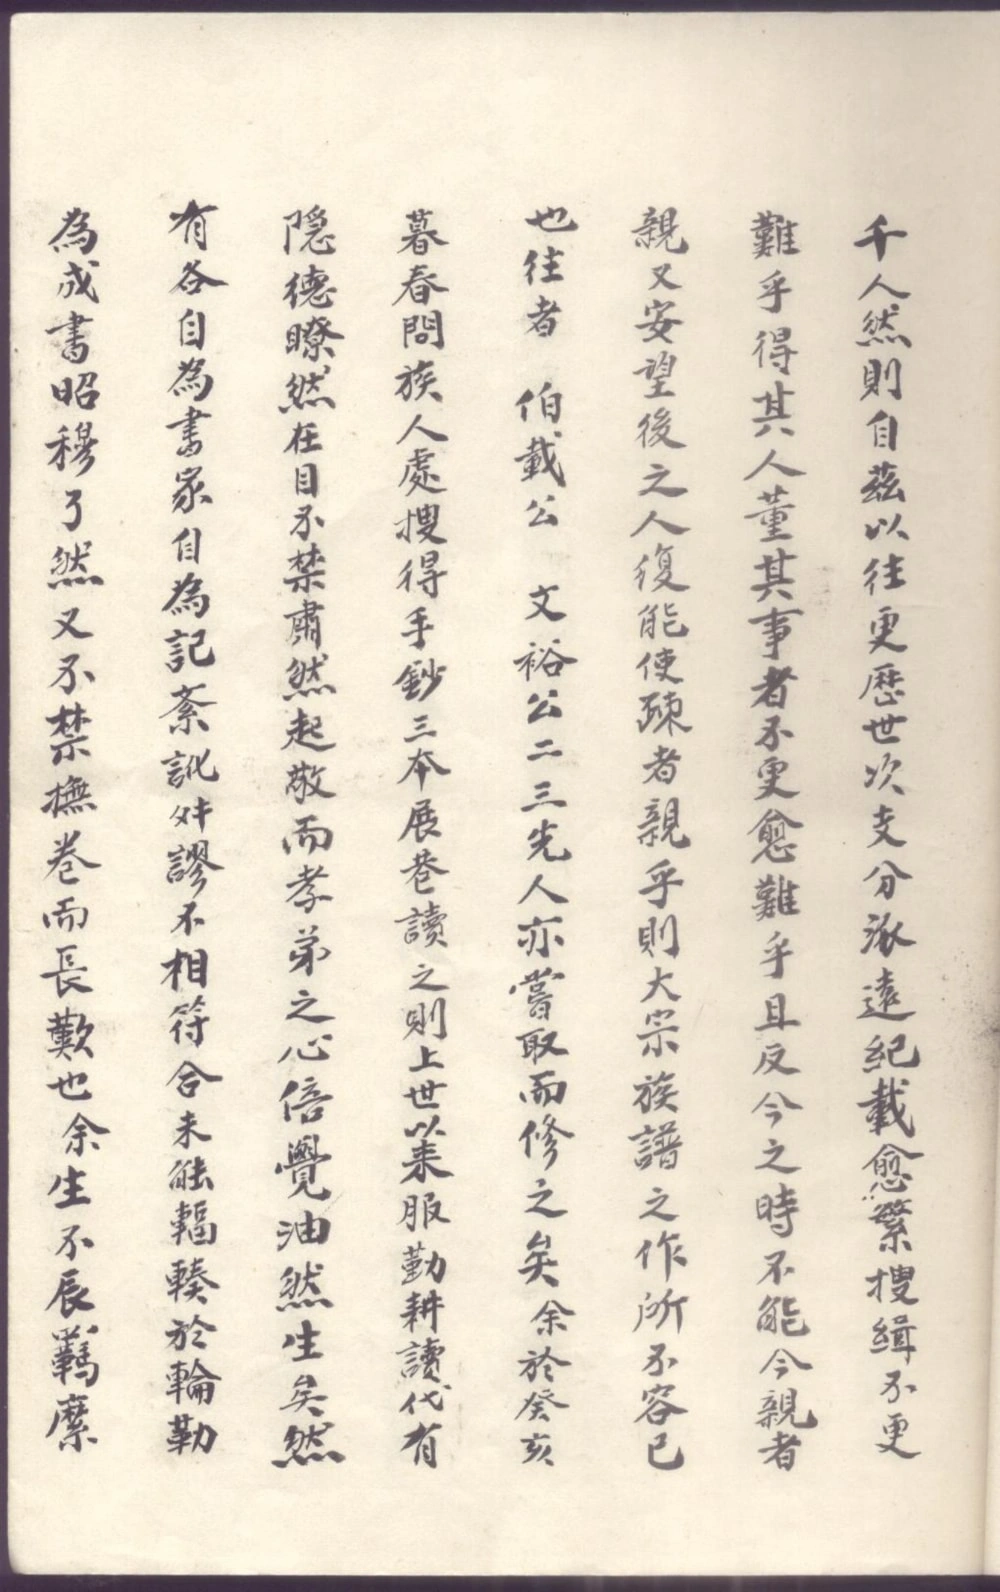 千人然則自茲以往更歷世次支分派遠紀載愈繁搜緝不更
難乎得其人董其事者不更愈難乎且反今之時不能令親者
親又安望後之人復能使疎者親乎則大宗族譜之作所不容已
也往者 伯載公 文裕公二三先人亦嘗取而修之矣余於癸亥
暮春問族人處搜得手鈔三本展卷讀之則上世以来服勤耕讀代有
隱德瞭然在目不禁肅然起敬而孝弟之心倍覺油然生矣然
有各自為書家自為記紊訛舛謬不相符合未能輻輳於輪勒
為成書昭穆了然又不禁撫卷而長歎也余生不辰羈縻